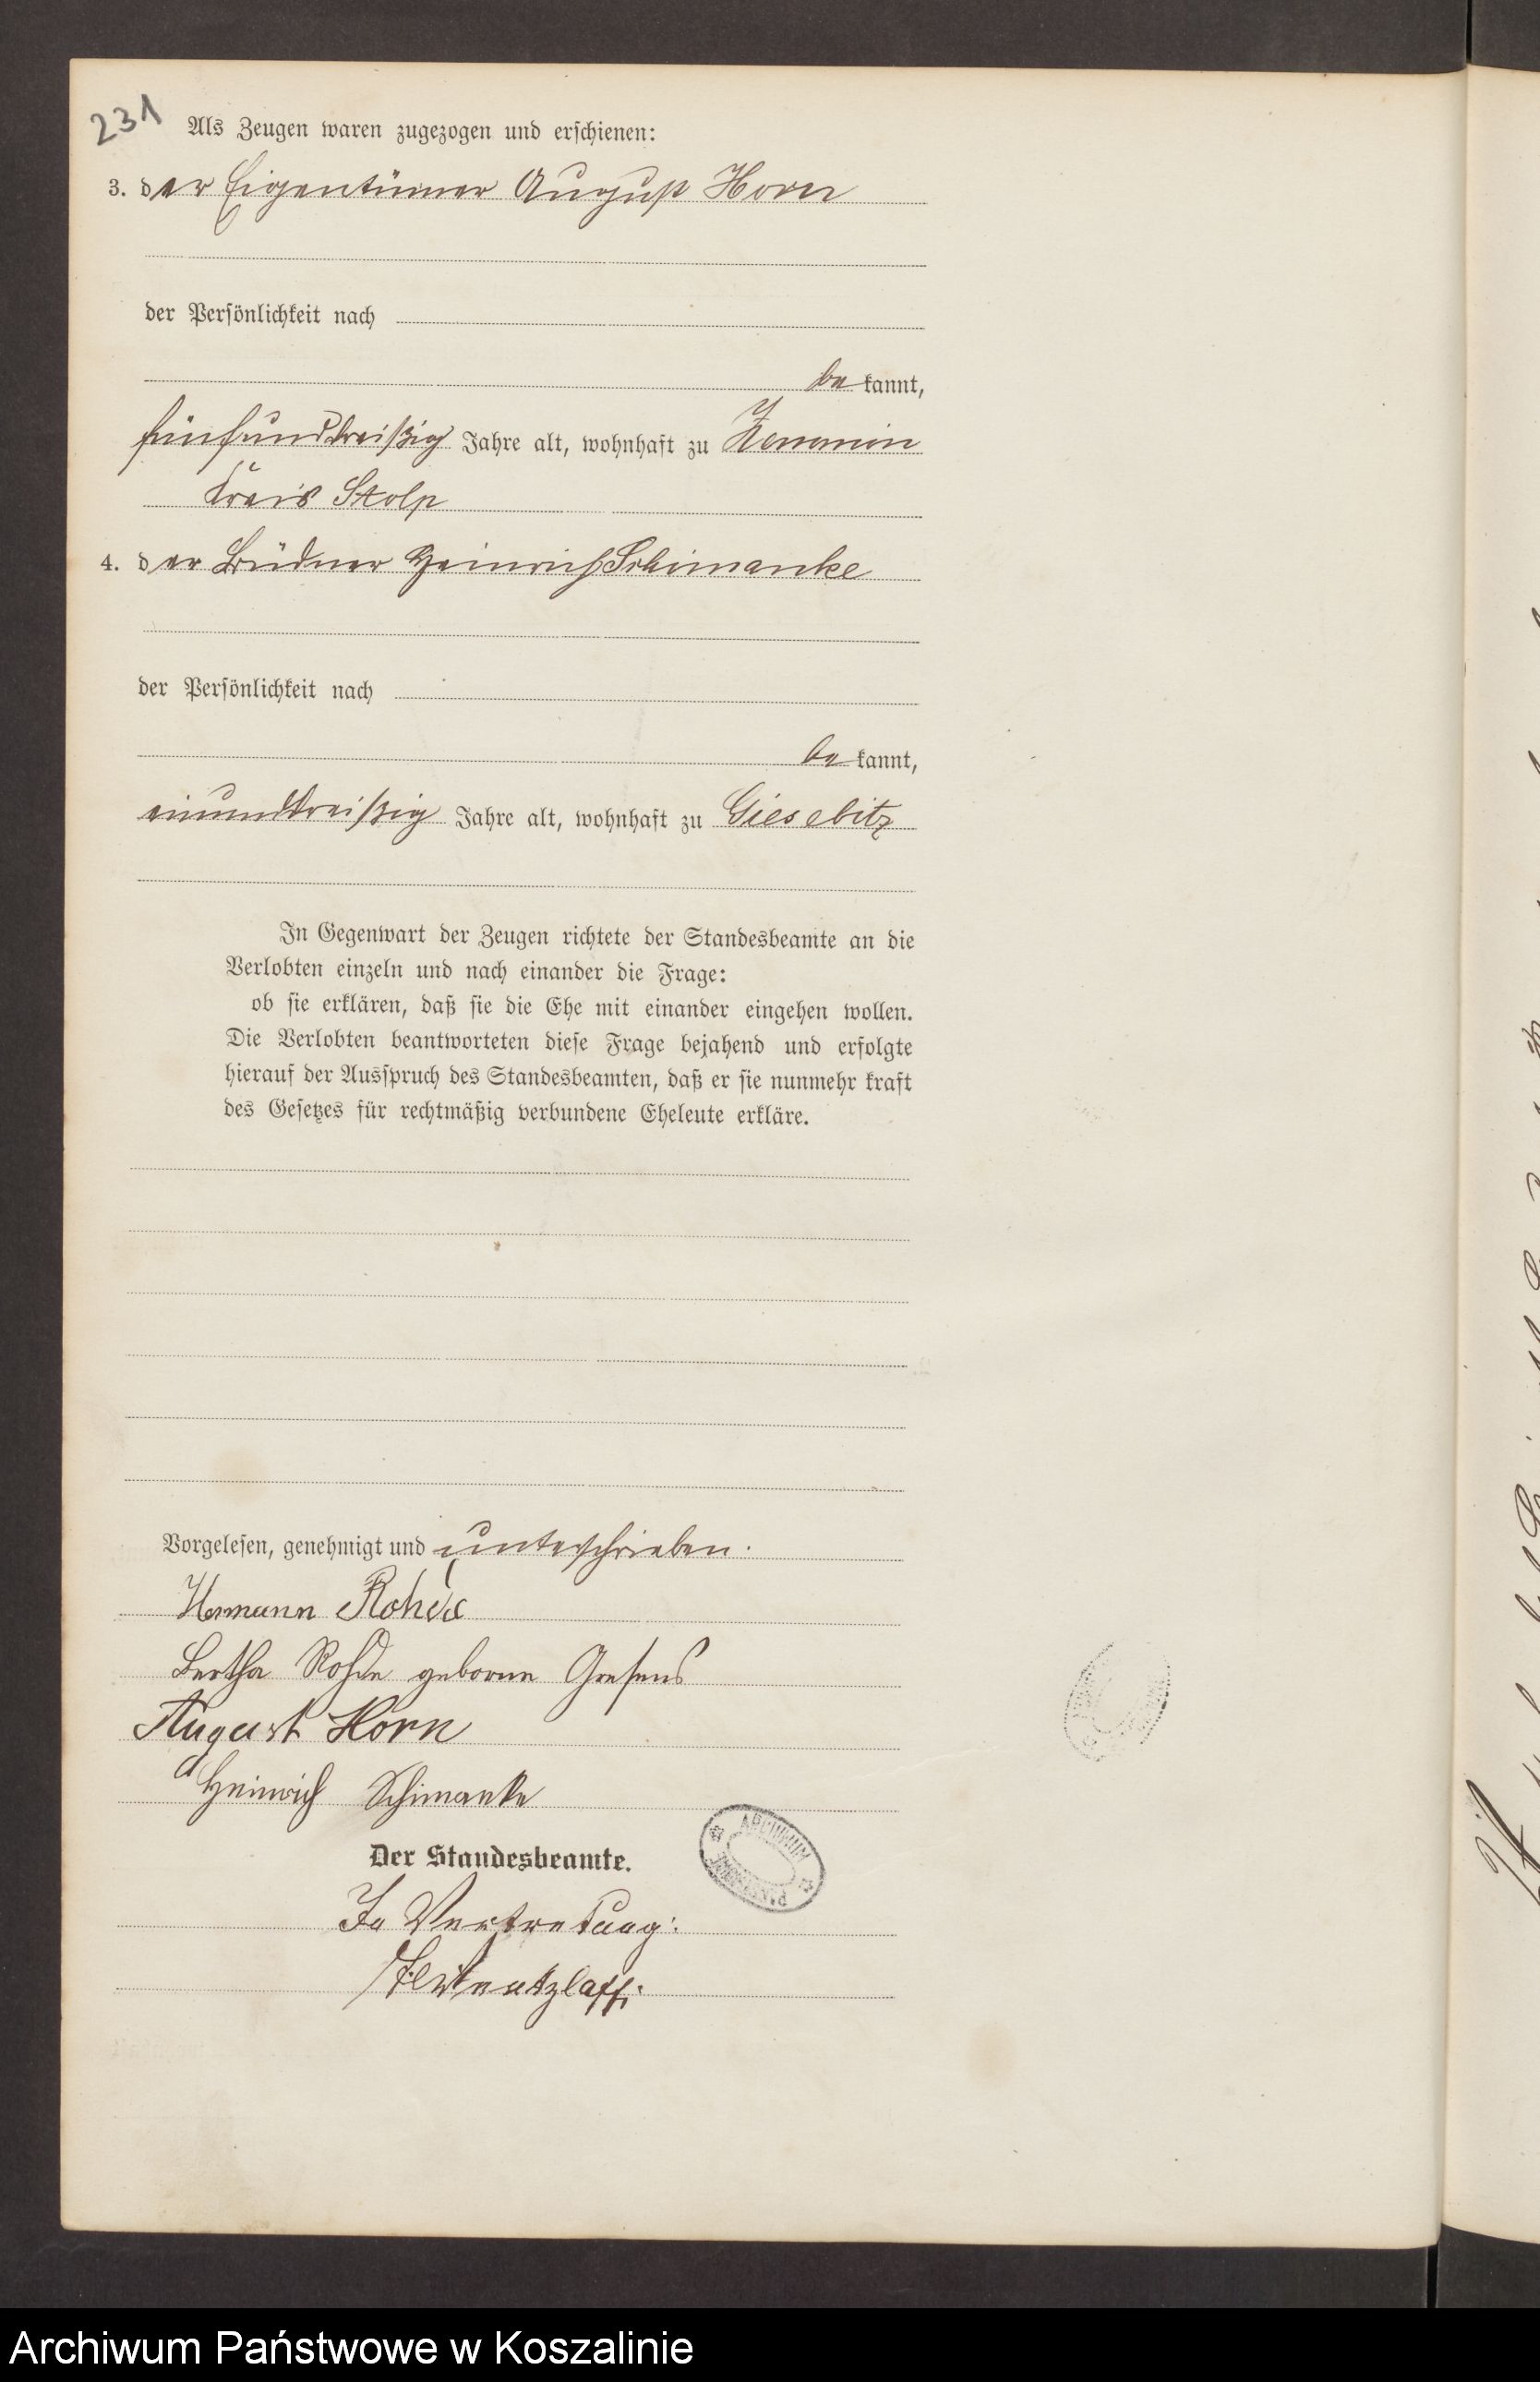 231
Als Zeugen waren zugezogen und erschienen:
3. der Eigentümer August Horn
der Persönlichkeit nach
be kannt,
fünfunddreißig Jahre alt, wohnhaft zu Zemmin
Kreis Stolp
4. der Büdner Heinrich Schimanke
der Persönlichkeit nach
be kannt,
einunddreißig Jahre alt, wohnhaft zu Giesebitz
In Gegenwart der Zeugen richtete der Standesbeamte an die
Verlobten einzeln und nach einander die Frage:
ob sie erklären, daß sie die Ehe mit einander eingehen wollen.
Die Verlobten beantworteten diese Frage bejahend und erfolgte
hierauf der Ausspruch des Standesbeamten, daß er sie nunmehr kraft
des Gesetzes für rechtmäßig verbundene Eheleute erkläre.
Vorgelesen, genehmigt und unterschrieben.
Hermann Rohde
Bertha Rohde geborne Gresens
August Horn
Heinrich Schimanke
ARCHIWUM
Der Standesbeamte.
In Vertretung:
Archiwum Państwowe w Koszalinie